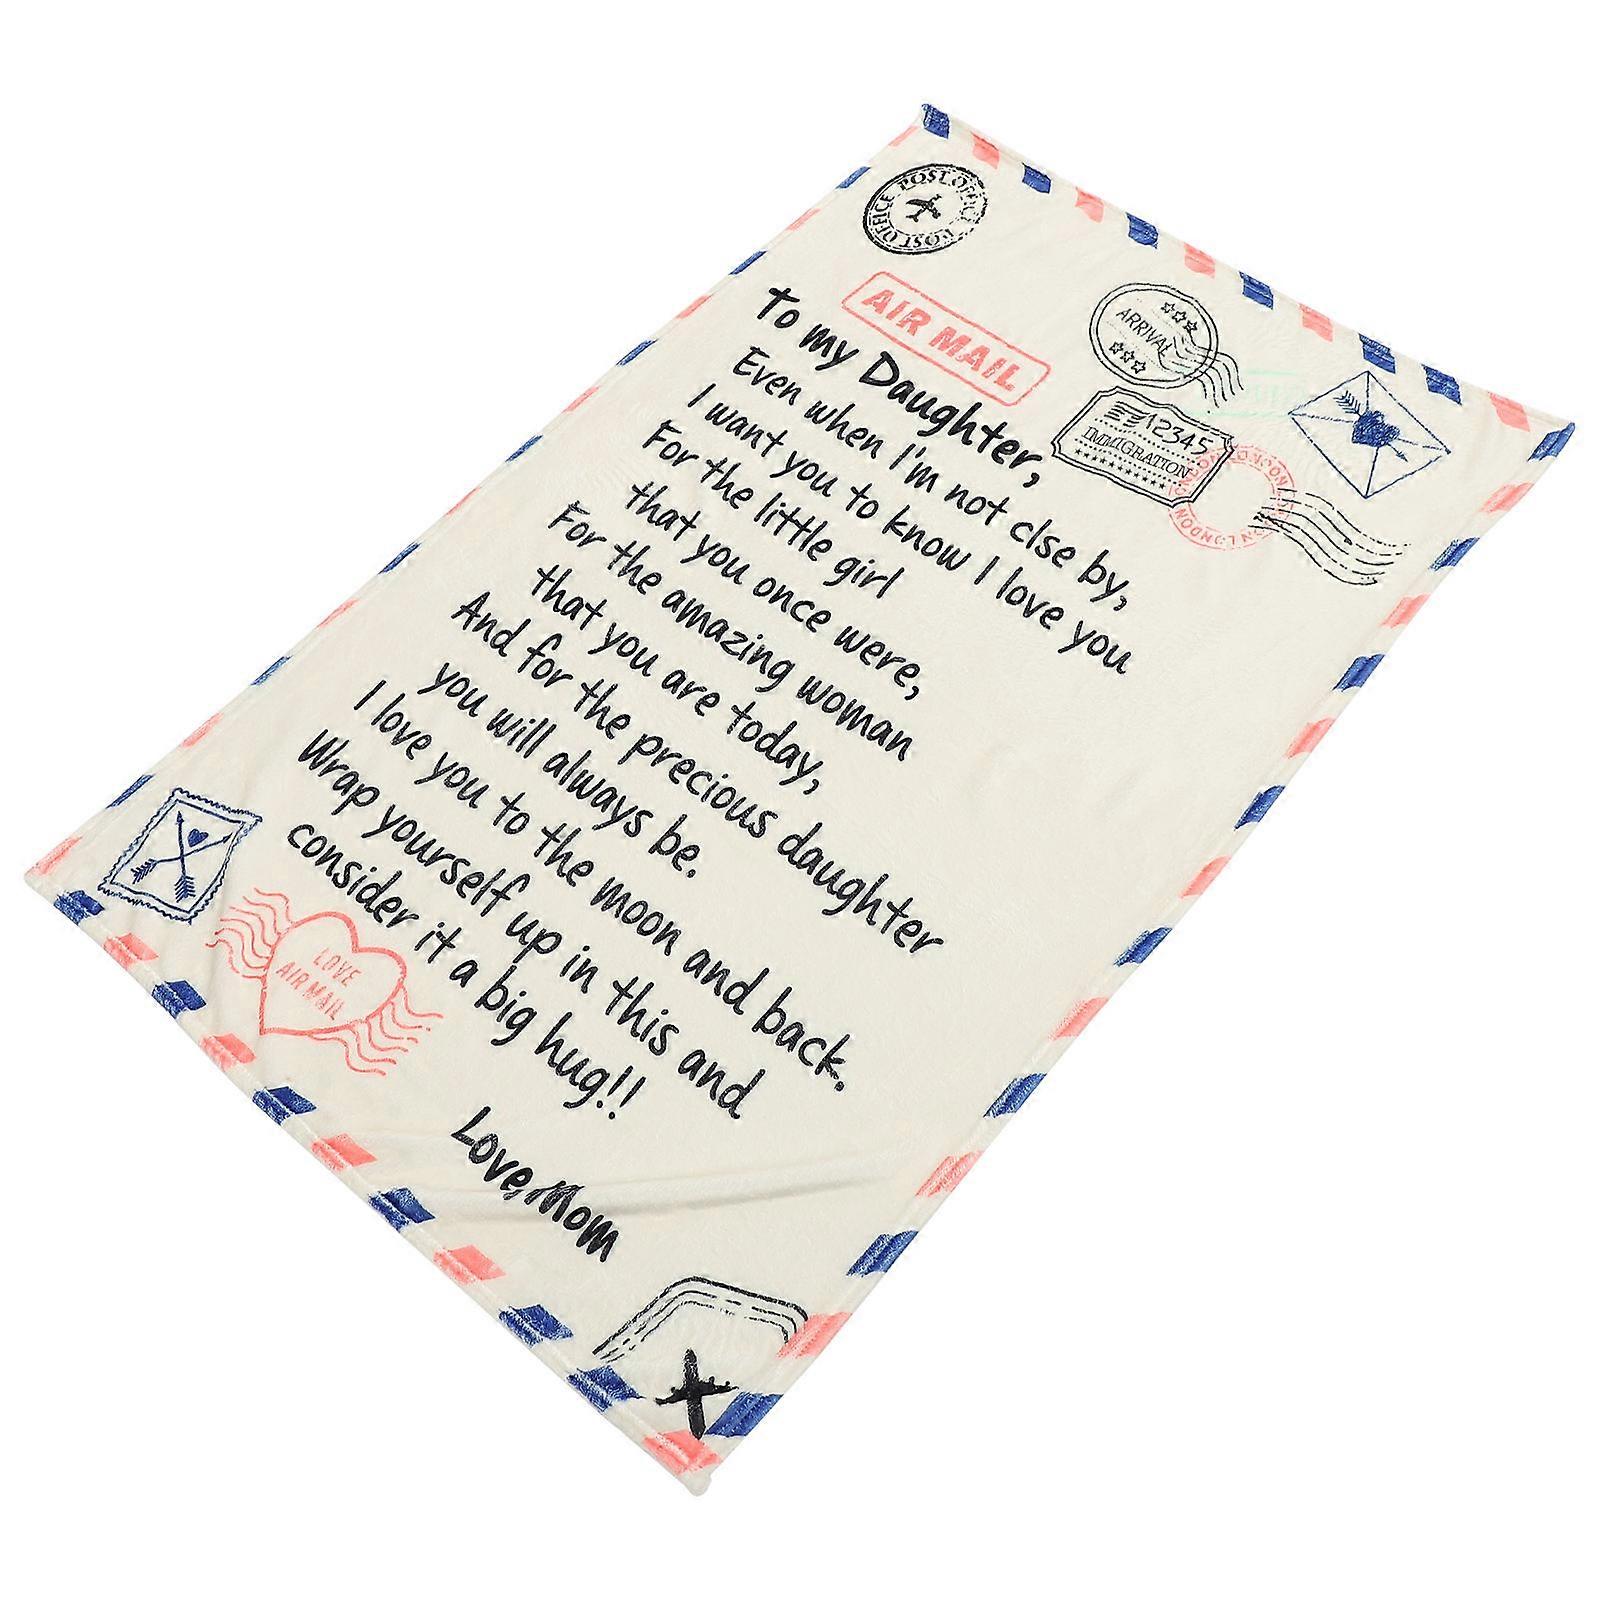 POST OFFICE POST OFFICE
AIR MAIL
ARRIVAL
12345
IMMIGRATION
LONDON LONDON
To my Daughter,
Even when I'm not clse by,
I want you to know I love you
For the little girl
that you once were,
For the amazing woman
that you are today,
And for the precious daughter
you will always be.
I love you to the moon and back.
Wrap yourself up in this and
consider it a big hug!!
Love,Mom
LOVE
AIR MAIL